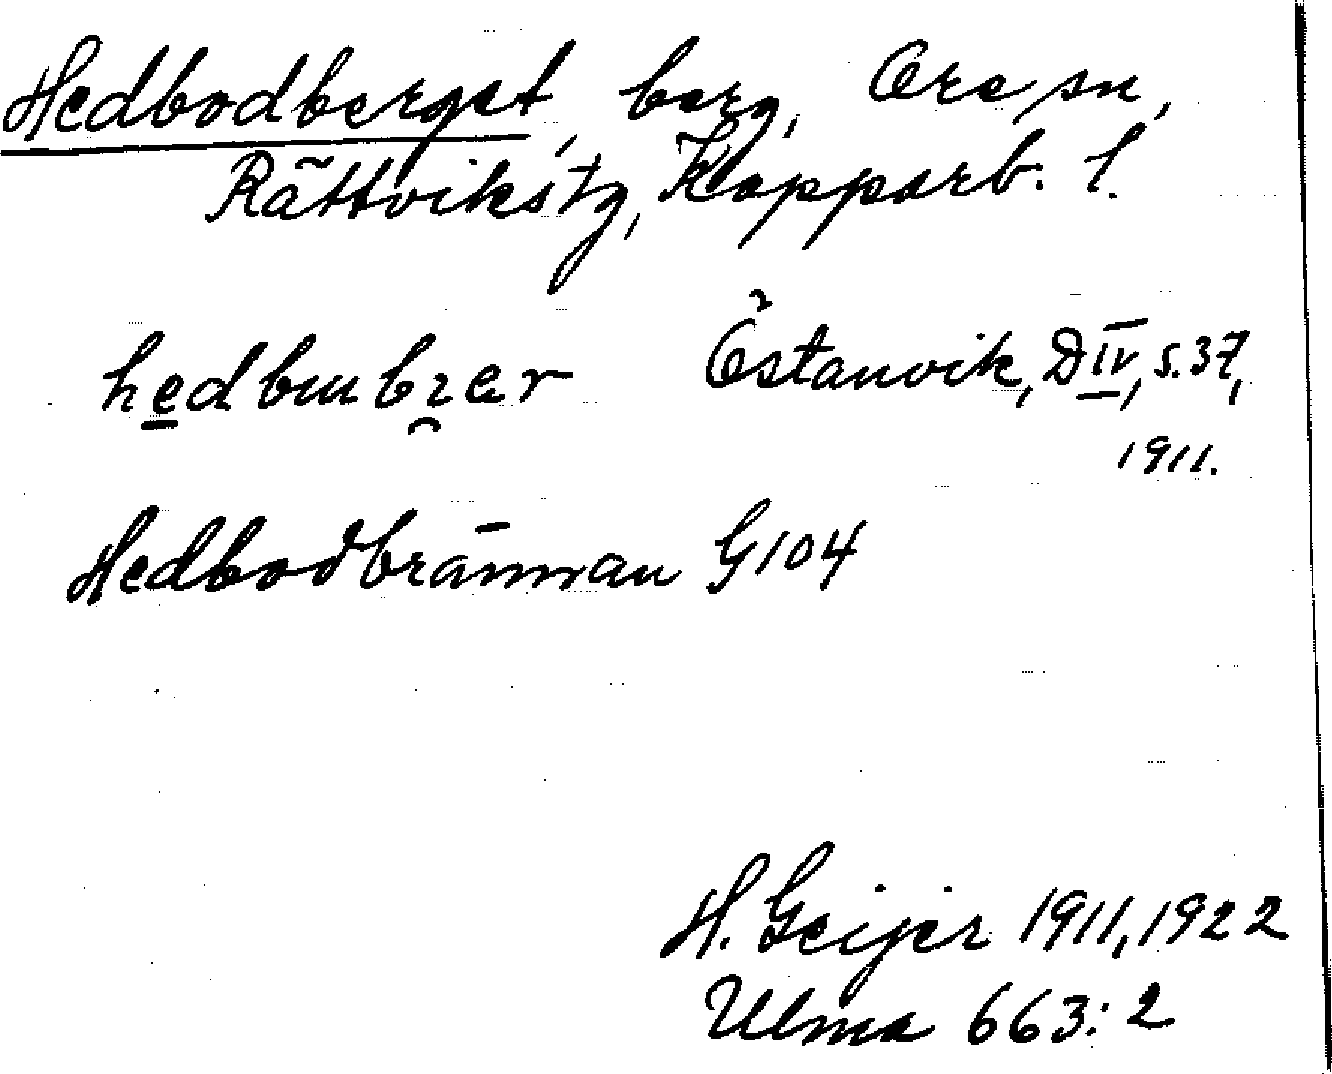 Hedbodberget, berg, Ore sn,
Rättviks tg, Kopparb. l.
Östanvik, D IV, s. 37,
1911.
Hedbodbrännan G 104
H. Geijer 1911, 1922
Ulma 663:2